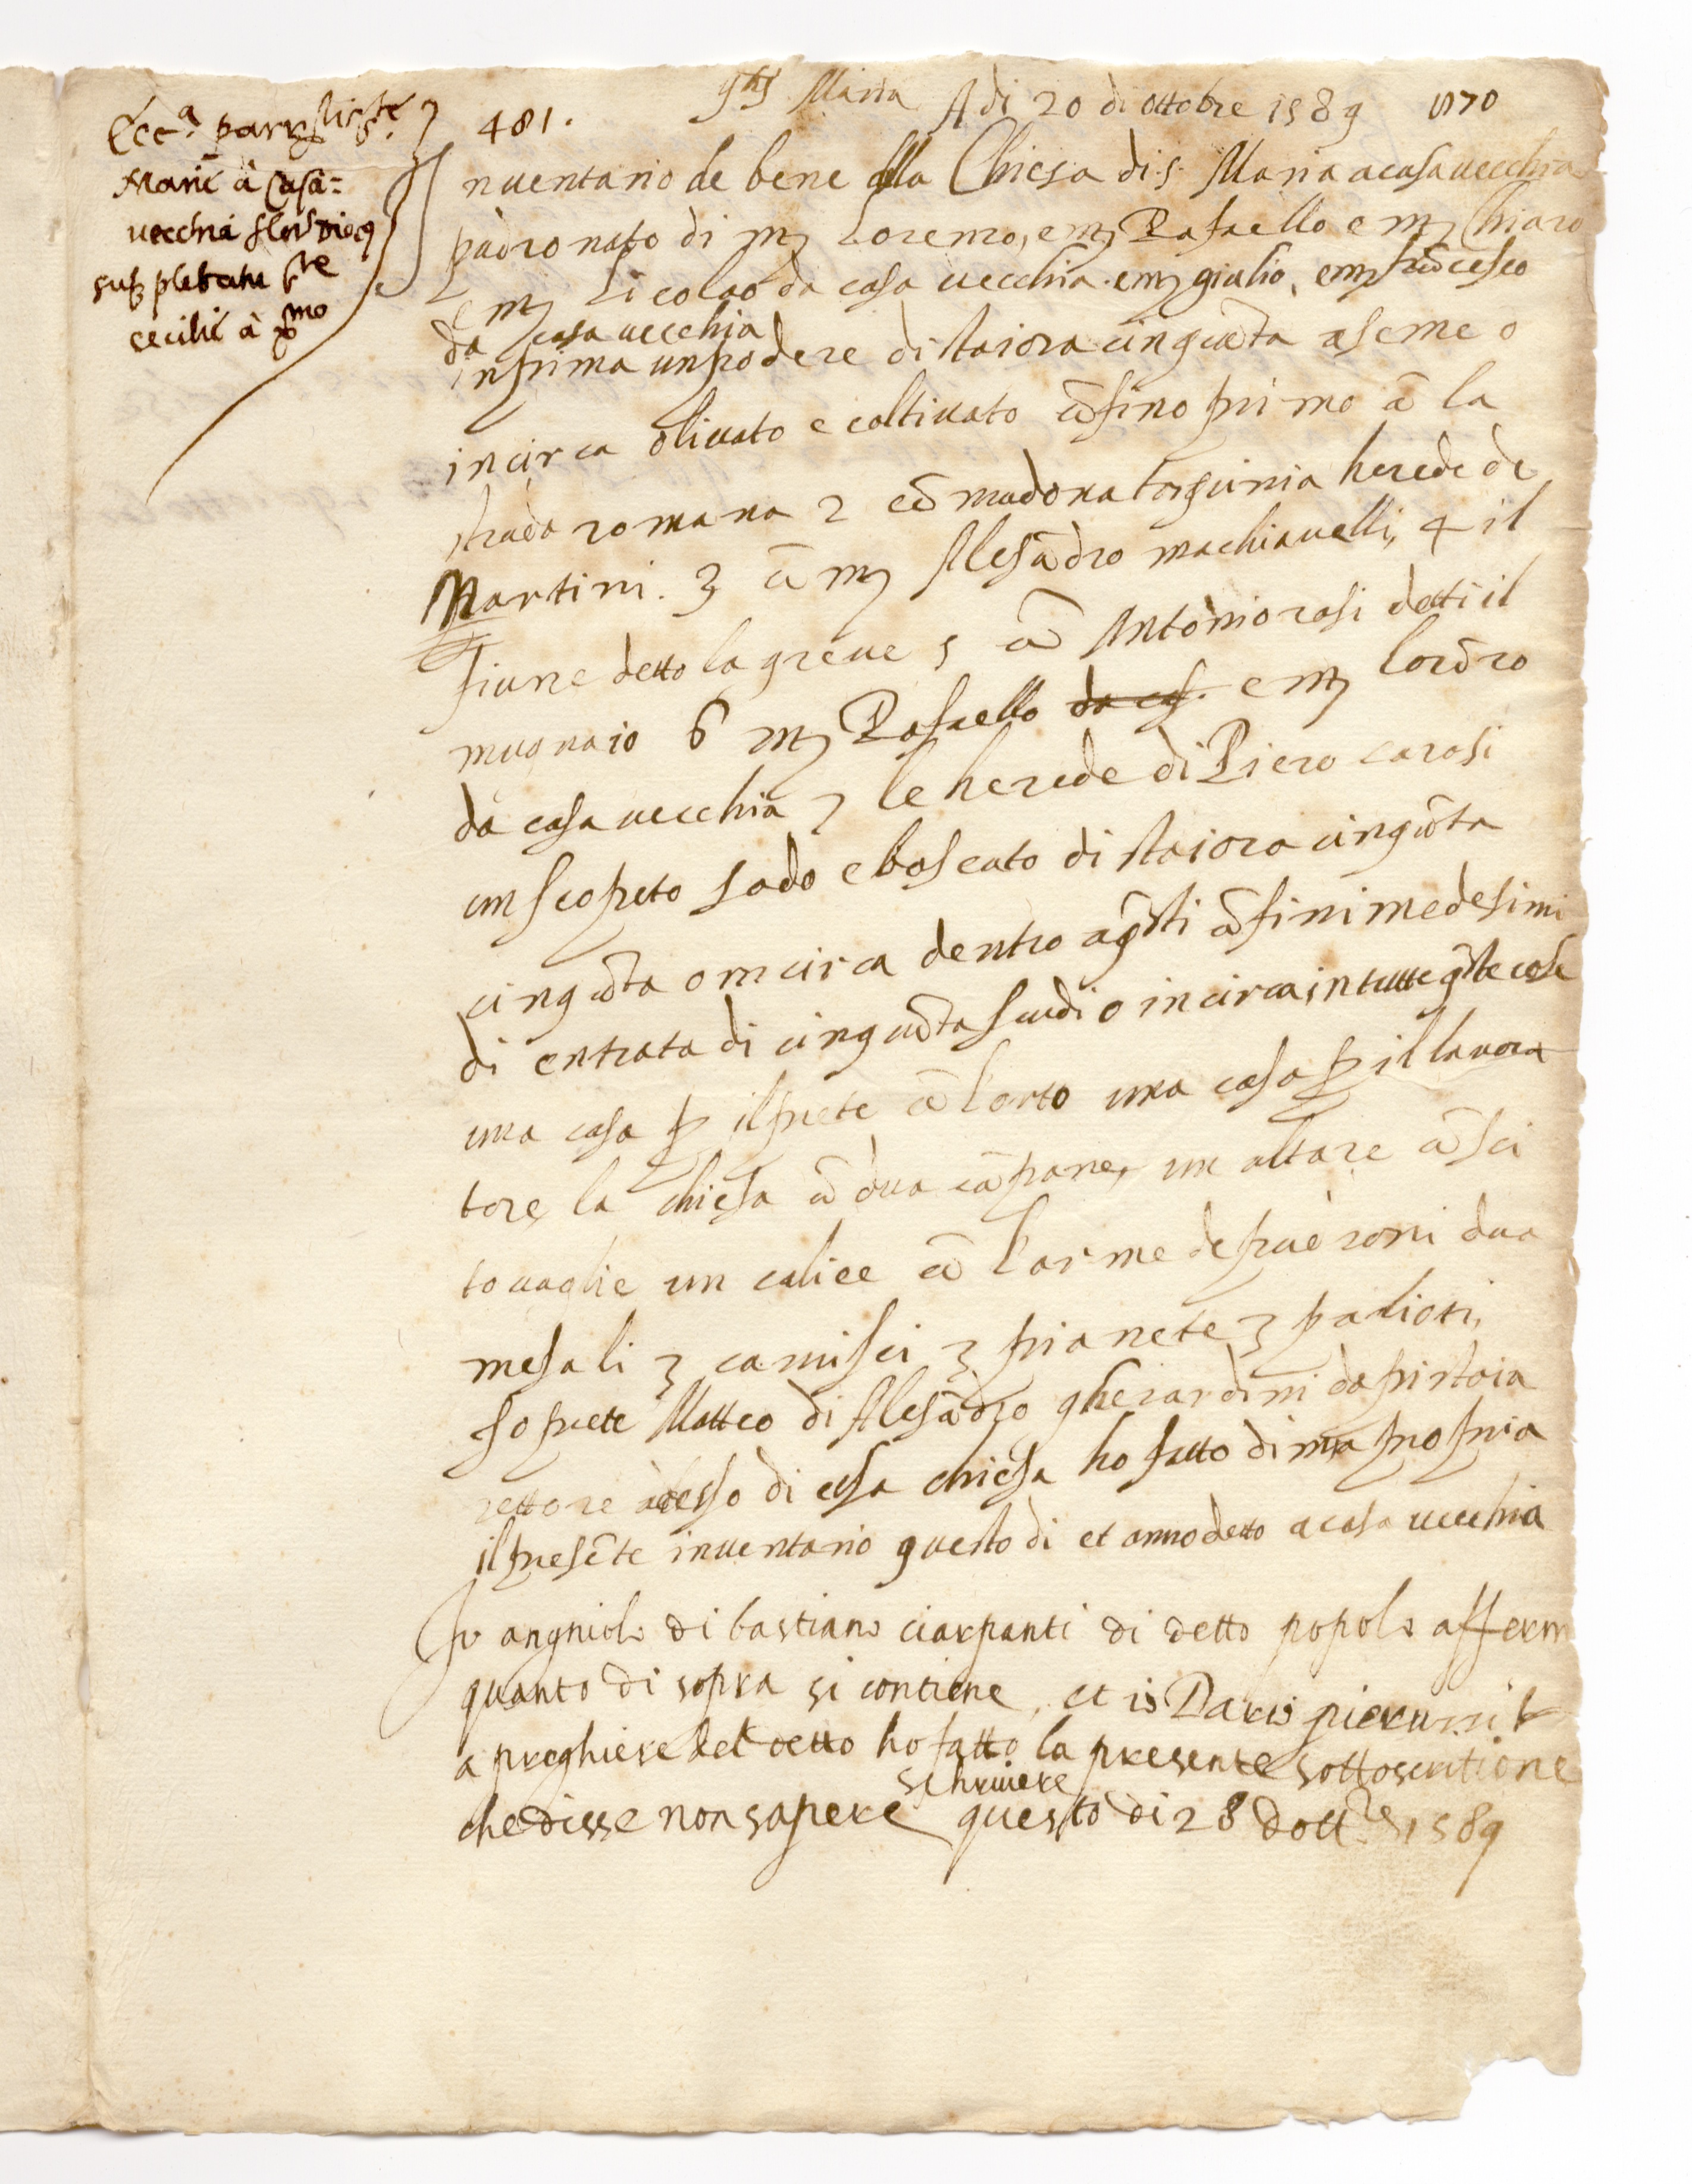 Ecc.ª parr.lis S.te
Marie à Casa=
vecchia flor. dioc.
sub plebatu S.te
cecilie à Xmo
481.
yhs Maria Adi 20 di ottobre 1589
Inventario de bene della Chiesa di .s. Maria a casa vecchia
padronato di mˢ Lorenzo, e mˢ Rafaello e mˢ Chiaro
e mˢ Licolao da casa vecchia. e mˢ giulio, e mˢ frācesco
da casa vecchia
inprima un podere di staiora cinquāta aseme o
incirca olivato e coltivato cōfino primo cō la
strada romana 2 cō madona herede de
Martini. 3 cō mˢ Alesādro machiavelli, 4 il
fiume detto la greve 5 cō Antonio rosi detti il
mugnaio 6 mˢ Rafaello da cas. e mˢ lorēzo
da casa vecchia 7 le herede di Piero carosi
un scopeto sodo e boscato di staiora cinquāta
cinquāta o incirca dentro a q̄sti cōfini medesimi
di entrata di cinquāta scudi o incirca in tutte q̄ste cose
una casa p il prete cō l'orto una casa p il lavora
tore, la chiesa cō dua cāpane, un altare cō sei
tovaglie un calice cō l'arme de padroni dua
mesali 3 camisci 3 pianete 3 palioti,
Io prete Matteo di Alesādro gherardini da pistoia
rettore adesso di essa chiesa ho fatto di mia propria
il presēte inventario questo di et anno detto a casa vecchia
Io angniolo di bastiano ciarpanti di detto popolo afferm
quanto di sopra si contiene, et io Paris pierunni
a preghiere del detto ho fatto la presente sottoscritione
che disse non sapere schrivere questo di 28 d'ott.re 1589